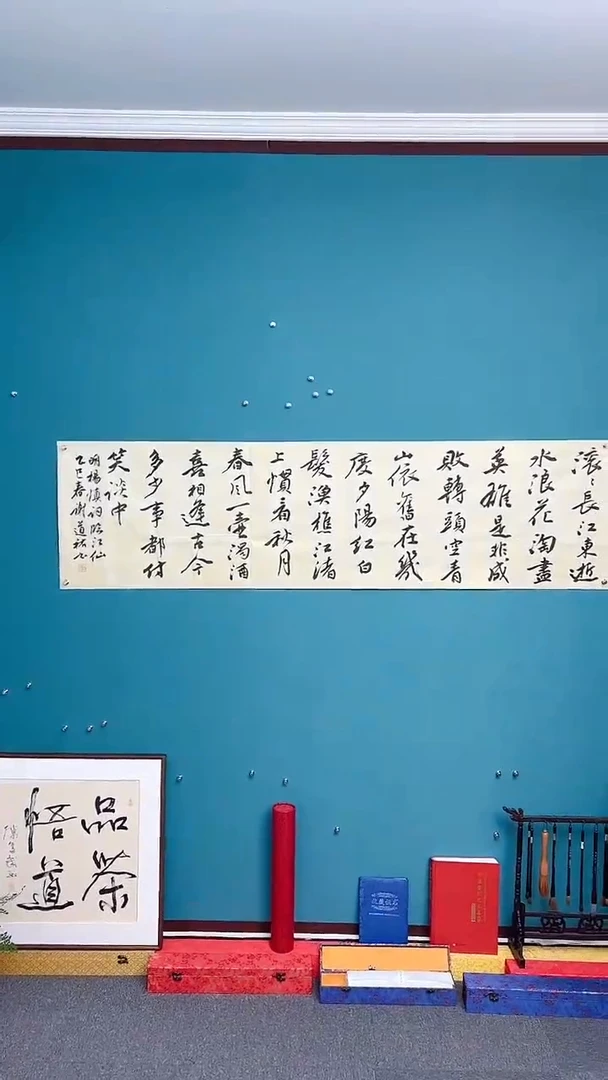 滚〻長江東逝
水浪花淘盡
英雄是非成
敗轉頭空青
山依舊在幾
度夕陽紅白
髮漁樵江渚
上慣看秋月
春风一壺濁酒
喜相逢古今
多少事都付
笑談中
明楊慎詞臨江仙
乙巳春謝道
品茶
悟道
收藏证书